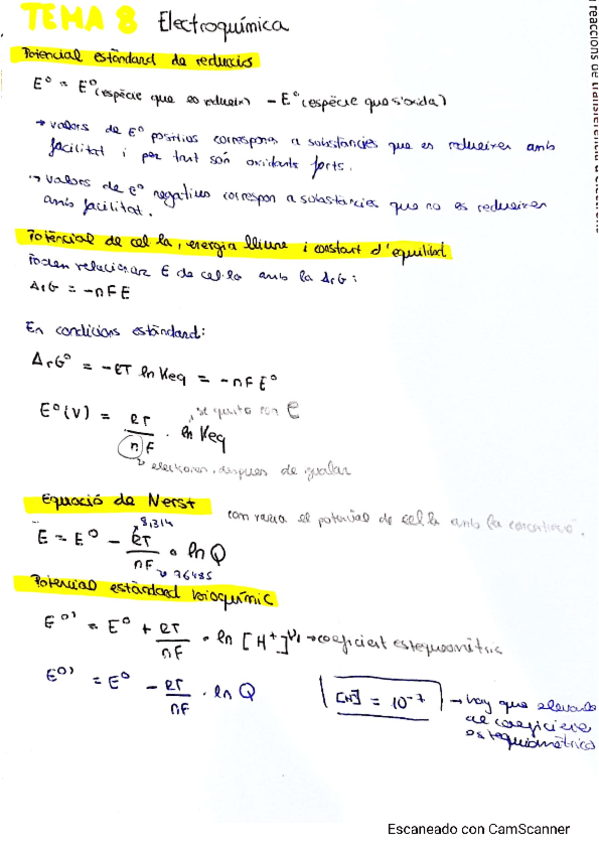 TEMA 8 Electroquímica
Potencial estàndard de reducció
E° = E°(espècie que es redueix) - E°(espècie que s'oxida)
→ valors de E° positius correspon a substàncies que es redueixen amb
facilitat i per tant són oxidants forts.
→ valors de E° negatius correspon a substàncies que no es redueixen
amb facilitat.
Potencial de cel·la, energia lliure i constant d'equilibri
Poden relacionar E de cel·la amb la ΔrG:
ΔrG = -nFE
En condicions estàndard:
ΔrG° = -RT ln Keq = -nFE°
E°(V) = RT/nF · ln Keq
se quita con e
electrones, despues de igualar
Equació de Nerst
com varia el potencial de cel·la amb la concentració.
8,314
E = E° - RT/nF · ln Q
96485
Potencial estàndard bioquímic
E°' = E° + RT/nF · ln [H+]^νi → coeficient estequiomètric
E°' = E° - RT/nF · ln Q
[H] = 10⁻⁷ → hay que elevarlo
al coeficiente
estequiométrico
Escaneado con CamScanner